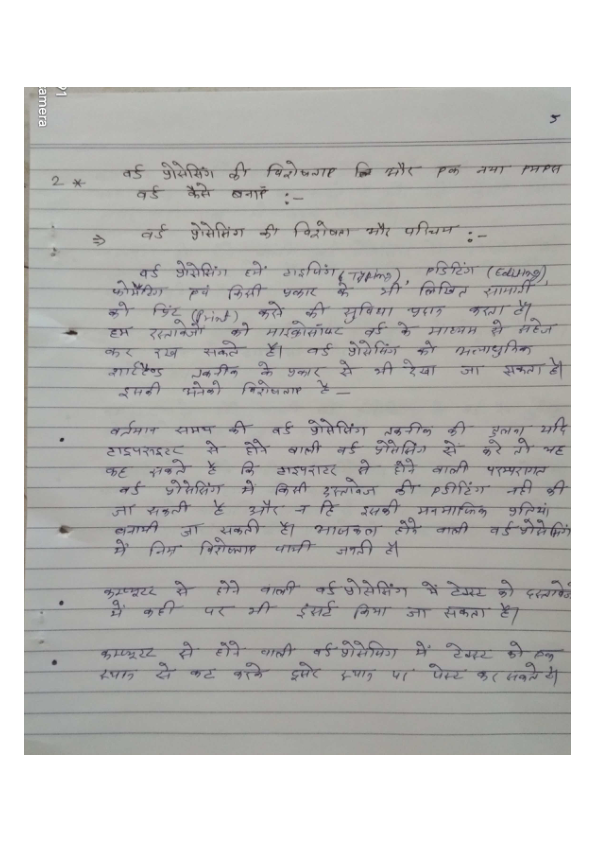 amera
5
2 * वर्ड प्रोसेसिंग की विशेषताए और एक नया
वर्ड कैसे बनाएं :-
⇒ वर्ड प्रोसेसिंग की विशेषता और परिचय :-
वर्ड प्रोसेसिंग हमें टाइपिंग (Typing), एडिटिंग (Editing),
फोर्मेटिंग एवं किसी प्रकार के भी लिखित सामग्री
को प्रिंट (Print) करने की सुविधा प्रदान करता है।
हम दस्तावेजों को माइक्रोसॉफ्ट वर्ड के माध्यम से सहेज
कर रख सकते हैं। वर्ड प्रोसेसिंग को अत्याधुनिक
शार्टहैण्ड तकनीक के प्रकार से भी देखा जा सकता है।
इसकी अनेको विशेषताए है —
• वर्तमान समय की वर्ड प्रोसेसिंग तकनीक की तुलना यदि
टाइपराइटर से होने वाली वर्ड प्रोसेसिंग से करे तो यह
कह सकते है कि टाइपराटर से होने वाली परम्परागत
वर्ड प्रोसेसिंग में किसी दस्तावेज की एडीटिंग नही की
जा सकती है और न हि इसकी मनमाफिक प्रतियां
बनायी जा सकती है। आजकल होने वाली वर्ड प्रोसेसिंग
में निम्न विशेषताए पायी जाती है।
• कम्प्यूटर से होने वाली वर्ड प्रोसेसिंग में टेक्स्ट को दस्तावेज
में कही पर भी इंसर्ट किया जा सकता है।
• कम्प्यूटर से होने वाली वर्ड प्रोसेसिंग में टेक्स्ट को एक
स्थान से कट करके दूसरे स्थान पर पेस्ट कर सकते है।